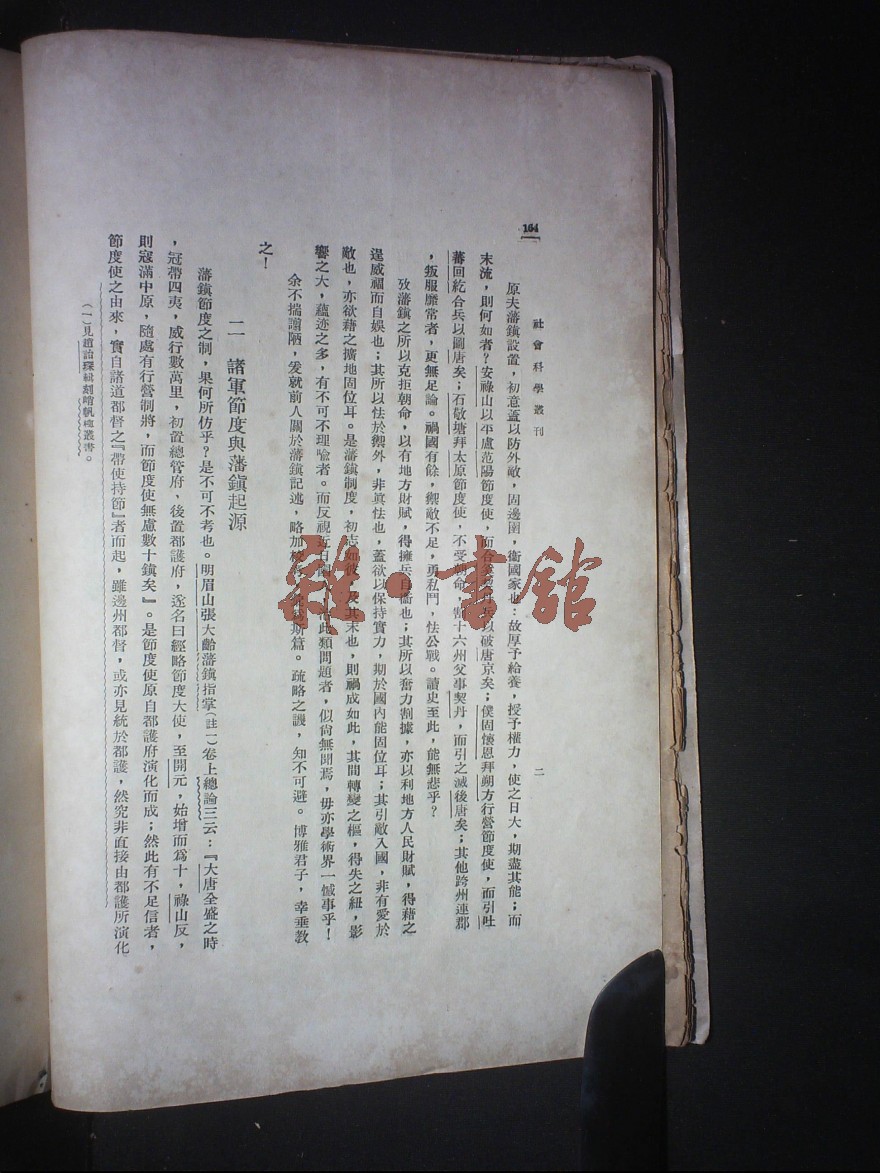 164
社會科學叢刊
二
原夫藩鎭設置，初意蓋以防外敵，固邊圉，衞國家也：故厚予給養，授予權力，使之日大，期盡其能；而
末流，則何如者？安祿山以平盧范陽節度使，而合奚契丹兵以破唐京矣；僕固懷恩拜朔方行營節度使，而引吐
蕃回紇合兵以圖唐矣；石敬塘拜太原節度使，不受朝命，割十六州父事契丹，而引之滅後唐矣；其他跨州連郡
，叛服靡常者，更無足論。禍國有餘，禦敵不足，勇私鬥，怯公戰。讀史至此，能無悲乎？
攷藩鎭之所以克拒朝命，以有地方財賦，得擁兵自衞也；其所以奮力割據，亦以利地方人民財賦，得藉之
逞威福而自娛也；其所以怯於禦外，非眞怯也，蓋欲以保持實力，期於國內能固位耳；其引敵入國，非有愛於
敵也，亦欲藉之擴地固位耳。是藩鎭制度，初志如彼，及其末也，則禍成如此，其間轉變之樞，得失之紐，影
響之大，蘊迹之多，有不可不理喩者。而反視近日國 此類問題者，似尙無聞焉，毋亦學術界一憾事乎！
余不揣謭陋，爰就前人關於藩鎭記述，略加 斯篇。疏略之譏，知不可避。博雅君子，幸垂教
之！
二　諸軍節度與藩鎭起源
藩鎭節度之制，果何所仿乎？是不可不考也。明眉山張大齡藩鎭指掌（註一）卷上總論三云：『大唐全盛之時
，冠帶四夷，威行數萬里，初置總管府，後置都護府，遂名曰經略節度大使，至開元，始增而爲十，祿山反，
則寇滿中原，隨處有行營制將，而節度使無慮數十鎭矣』。是節度使原自都護府演化而成；然此有不足信者，
節度使之由來，實自諸道都督之『帶使持節』者而起，雖邊州都督，或亦見統於都護，然究非直接由都護所演化
（一）見趙詒琛輯刻峭帆樓叢書。
雜·書館